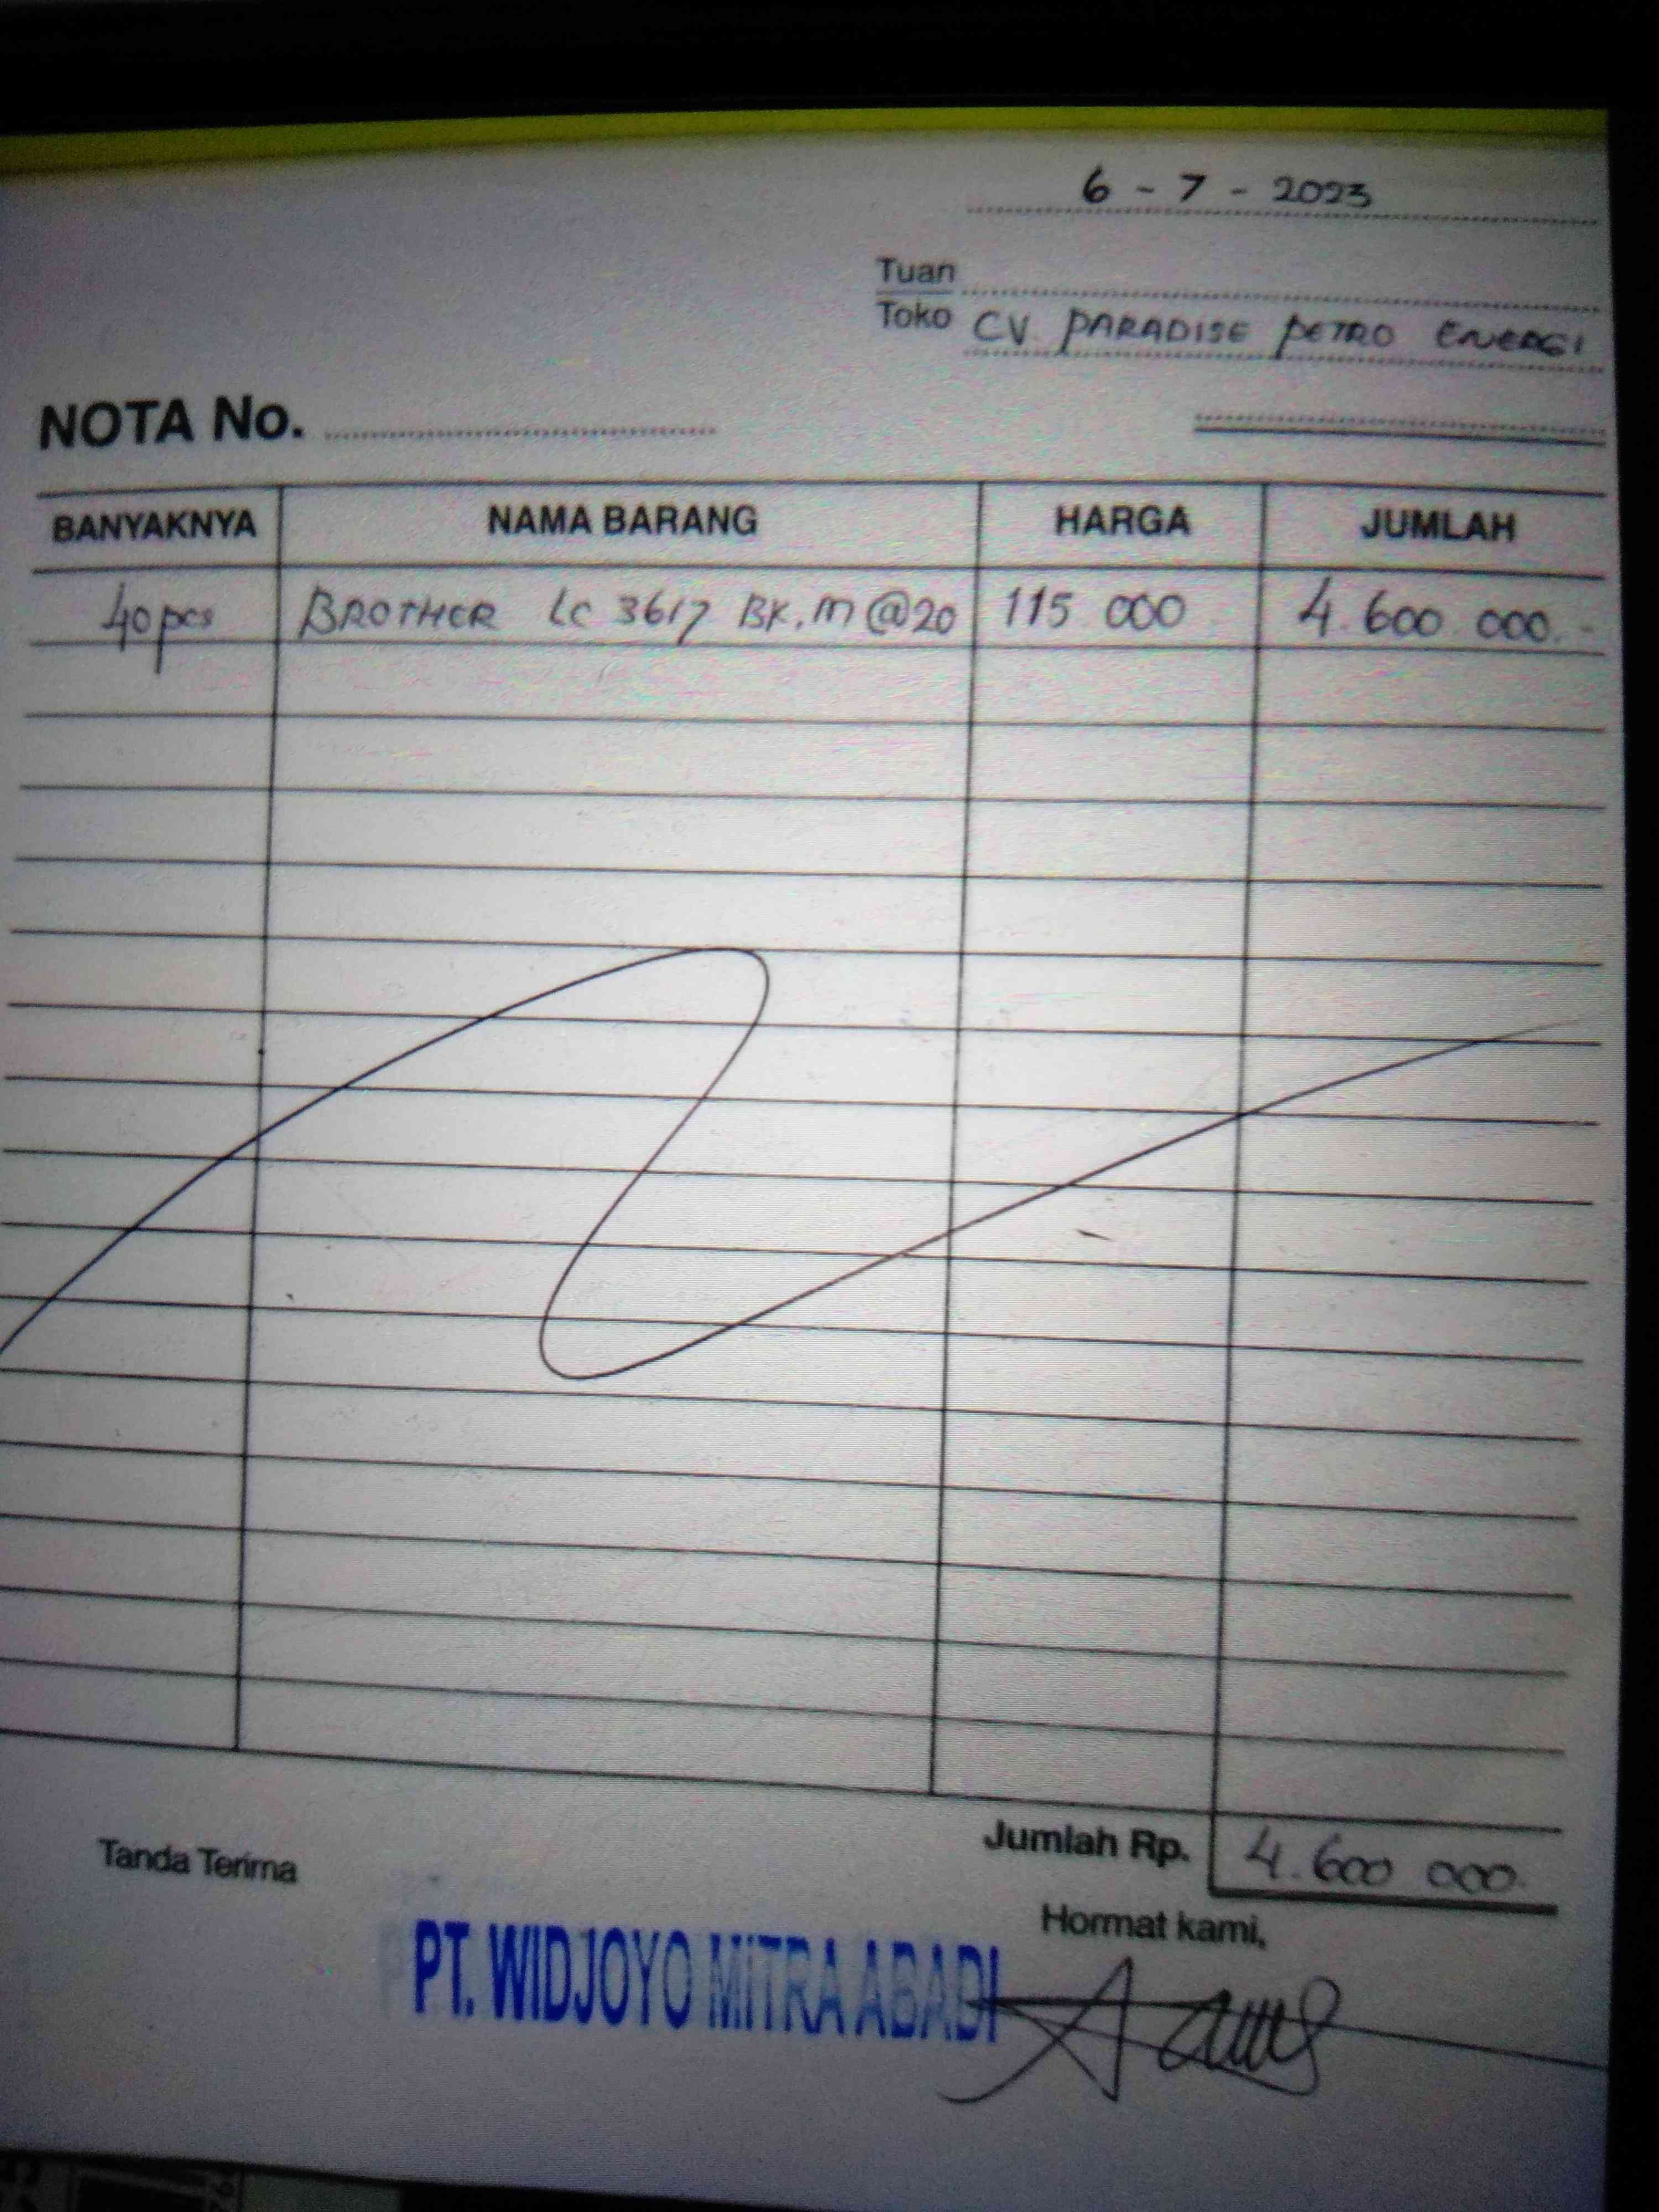 6 - 7 - 2023
Tuan
Toko CV PARADISE PETRO ENERGI
NOTA No.
BANYAKNYA NAMA BARANG HARGA JUMLAH
40 pcs BROTHER LC 3617 BK, M @20 115 000 4.600 000.-
Jumlah Rp. 4.600 000
Tanda Terima
Hormat kami,
PT. WIDJOYO MITRA ABADI